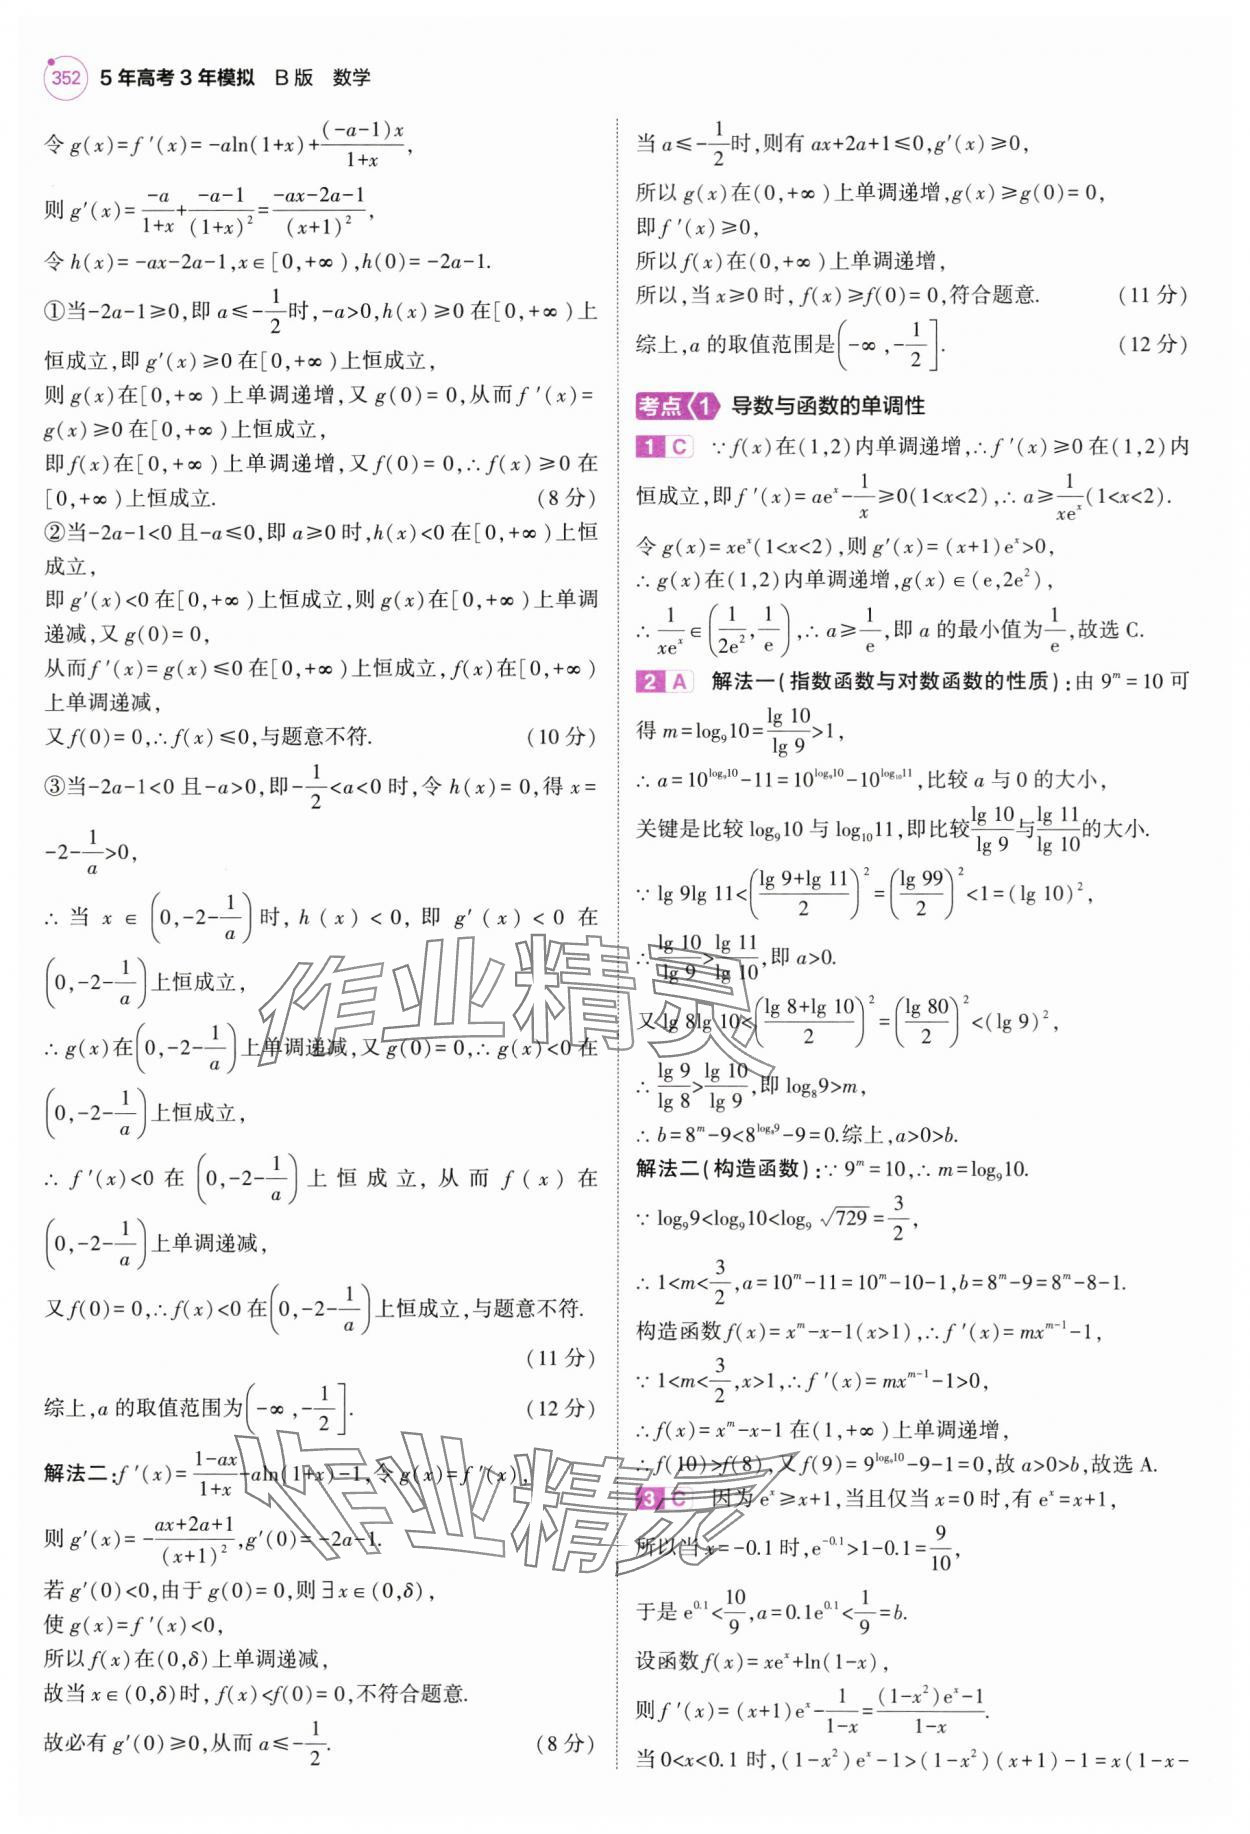 352 5年高考3年模拟 B版 数学
令 g(x)=f′(x)=-aln(1+x)+\frac{(-a-1)x}{1+x},
则 g′(x)=\frac{-a}{1+x}+\frac{-a-1}{(1+x)^2}=\frac{-ax-2a-1}{(x+1)^2},
令 h(x)=-ax-2a-1,x∈[0,+∞),h(0)=-2a-1.
①当-2a-1≥0,即 a≤-\frac{1}{2}时,-a>0,h(x)≥0 在[0,+∞)上
恒成立,即 g′(x)≥0 在[0,+∞)上恒成立,
则 g(x)在[0,+∞)上单调递增,又 g(0)=0,从而 f′(x)=
g(x)≥0 在[0,+∞)上恒成立,
即 f(x)在[0,+∞)上单调递增,又 f(0)=0,∴f(x)≥0 在
[0,+∞)上恒成立. (8 分)
②当-2a-1<0 且-a≤0,即 a≥0 时,h(x)<0 在[0,+∞)上恒
成立,
即 g′(x)<0 在[0,+∞)上恒成立,则 g(x)在[0,+∞)上单调
递减,又 g(0)=0,
从而 f′(x)=g(x)≤0 在[0,+∞)上恒成立,f(x)在[0,+∞)
上单调递减,
又 f(0)=0,∴f(x)≤0,与题意不符. (10 分)
③当-2a-1<0 且-a>0,即-\frac{1}{2}<a<0 时,令 h(x)=0,得 x=
-2-\frac{1}{a}>0,
∴当 x∈(0,-2-\frac{1}{a})时,h(x)<0,即 g′(x)<0 在
(0,-2-\frac{1}{a})上恒成立,
∴g(x)在(0,-2-\frac{1}{a})上单调递减,又 g(0)=0,∴g(x)<0 在
(0,-2-\frac{1}{a})上恒成立,
∴f′(x)<0 在(0,-2-\frac{1}{a})上恒成立,从而 f(x)在
(0,-2-\frac{1}{a})上单调递减,
又 f(0)=0,∴f(x)<0 在(0,-2-\frac{1}{a})上恒成立,与题意不符.
(11 分)
综上,a 的取值范围为(-∞,-\frac{1}{2}]. (12 分)
解法二:f′(x)=\frac{1-ax}{1+x}-aln(1+x)-1,令 g(x)=f′(x),
则 g′(x)=-\frac{ax+2a+1}{(x+1)^2},g′(0)=-2a-1.
若 g′(0)<0,由于 g(0)=0,则∃x∈(0,δ),
使 g(x)=f′(x)<0,
所以 f(x)在(0,δ)上单调递减,
故当 x∈(0,δ)时,f(x)<f(0)=0,不符合题意.
故必有 g′(0)≥0,从而 a≤-\frac{1}{2}. (8 分)
当 a≤-\frac{1}{2}时,则有 ax+2a+1≤0,g′(x)≥0,
所以 g(x)在(0,+∞)上单调递增,g(x)≥g(0)=0,
即 f′(x)≥0,
所以 f(x)在(0,+∞)上单调递增,
所以,当 x≥0 时,f(x)≥f(0)=0,符合题意. (11 分)
综上,a 的取值范围是(-∞,-\frac{1}{2}]. (12 分)
考点 1 导数与函数的单调性
1 C ∵f(x)在(1,2)内单调递增,∴f′(x)≥0 在(1,2)内
恒成立,即 f′(x)=ae^x-\frac{1}{x}≥0(1<x<2),∴a≥\frac{1}{xe^x}(1<x<2).
令 g(x)=xe^x(1<x<2),则 g′(x)=(x+1)e^x>0,
∴g(x)在(1,2)内单调递增,g(x)∈(e,2e^2),
∴\frac{1}{xe^x}∈(\frac{1}{2e^2},\frac{1}{e}),∴a≥\frac{1}{e},即 a 的最小值为\frac{1}{e},故选 C.
2 A 解法一(指数函数与对数函数的性质):由 9^m=10 可
得 m=log_9 10=\frac{lg 10}{lg 9}>1,
∴a=10^{log_9 10}-11=10^{log_9 10}-10^{log_{10} 11},比较 a 与 0 的大小,
关键是比较 log_9 10 与 log_{10} 11,即比较\frac{lg 10}{lg 9}与\frac{lg 11}{lg 10}的大小.
∵lg 9lg 11<(\frac{lg 9+lg 11}{2})^2=(\frac{lg 99}{2})^2<1=(lg 10)^2,
∴\frac{lg 10}{lg 9}>\frac{lg 11}{lg 10},即 a>0.
又 lg 8lg 10<(\frac{lg 8+lg 10}{2})^2=(\frac{lg 80}{2})^2<(lg 9)^2,
∴\frac{lg 9}{lg 8}>\frac{lg 10}{lg 9},即 log_8 9>m,
∴b=8^m-9<8^{log_8 9}-9=0.综上,a>0>b.
解法二(构造函数):∵9^m=10,∴m=log_9 10.
∵log_9 9<log_9 10<log_9 √729=\frac{3}{2},
∴1<m<\frac{3}{2},a=10^m-11=10^m-10-1,b=8^m-9=8^m-8-1.
构造函数 f(x)=x^m-x-1(x>1),∴f′(x)=mx^{m-1}-1,
∵1<m<\frac{3}{2},x>1,∴f′(x)=mx^{m-1}-1>0,
∴f(x)=x^m-x-1 在(1,+∞)上单调递增,
∴f(10)>f(8),又 f(9)=9^{log_9 10}-9-1=0,故 a>0>b,故选 A.
3 C 因为 e^x≥x+1,当且仅当 x=0 时,有 e^x=x+1,
所以当 x=-0.1 时,e^{-0.1}>1-0.1=\frac{9}{10},
于是 e^{0.1}<\frac{10}{9},a=0.1e^{0.1}<\frac{1}{9}=b.
设函数 f(x)=xe^x+ln(1-x),
则 f′(x)=(x+1)e^x-\frac{1}{1-x}=\frac{(1-x^2)e^x-1}{1-x}.
当 0<x<0.1 时,(1-x^2)e^x-1>(1-x^2)(x+1)-1=x(1-x-
作业精灵
作业精灵